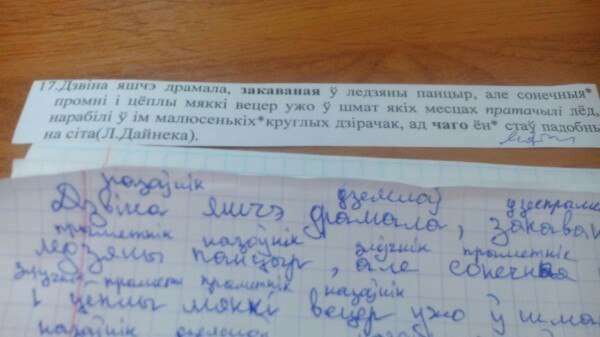 17.Дзвіна яшчэ драмала, закаваная ў ледзяны панцыр, але сонечныя*
промні і цёплы мяккі вецер ужо ў шмат якіх месцах пратачылі лёд,
нарабілі ў ім малюсенькіх*круглых дзірачак, ад чаго ён* стаў падобны
на сіта(Л.Дайнека).
назоўнік дзеяслоў дзеепрым
Дзвіна яшчэ драмала, закаван
прыметнік назоўнік злучнік прыметнік
ледзяны панцыр, але сонечныя
злучнік прыметнік назоўнік
і цёплы мяккі вецер ужо ў шма
назоўнік